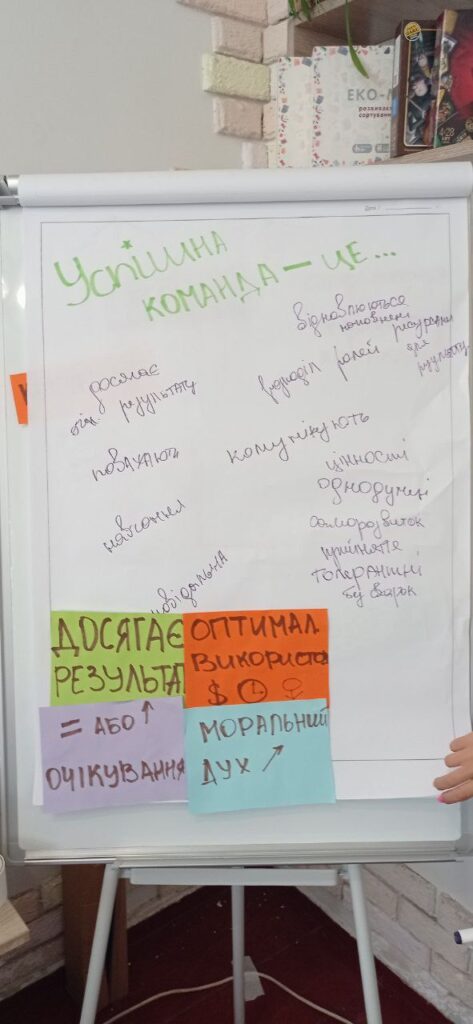 ЕКО-М
розвиваю
сортуван
4-28
Дата
УСПІШНА
КОМАНДА – ЦЕ...
відновлюються
ресурсами
для
результату
розподіл ролей
досягає
результату
комунікують
поважають
цінності
однодумці
навчання
саморозвиток
прийняття
толерантні
без сварок
відповідальна
ДОСЯГАЄ
РЕЗУЛЬТАТ
ОПТИМАЛ.
ВИКОРИСТА
$
= АБО ↑
ОЧІКУВАННЯ
МОРАЛЬНИЙ
ДУХ ↗